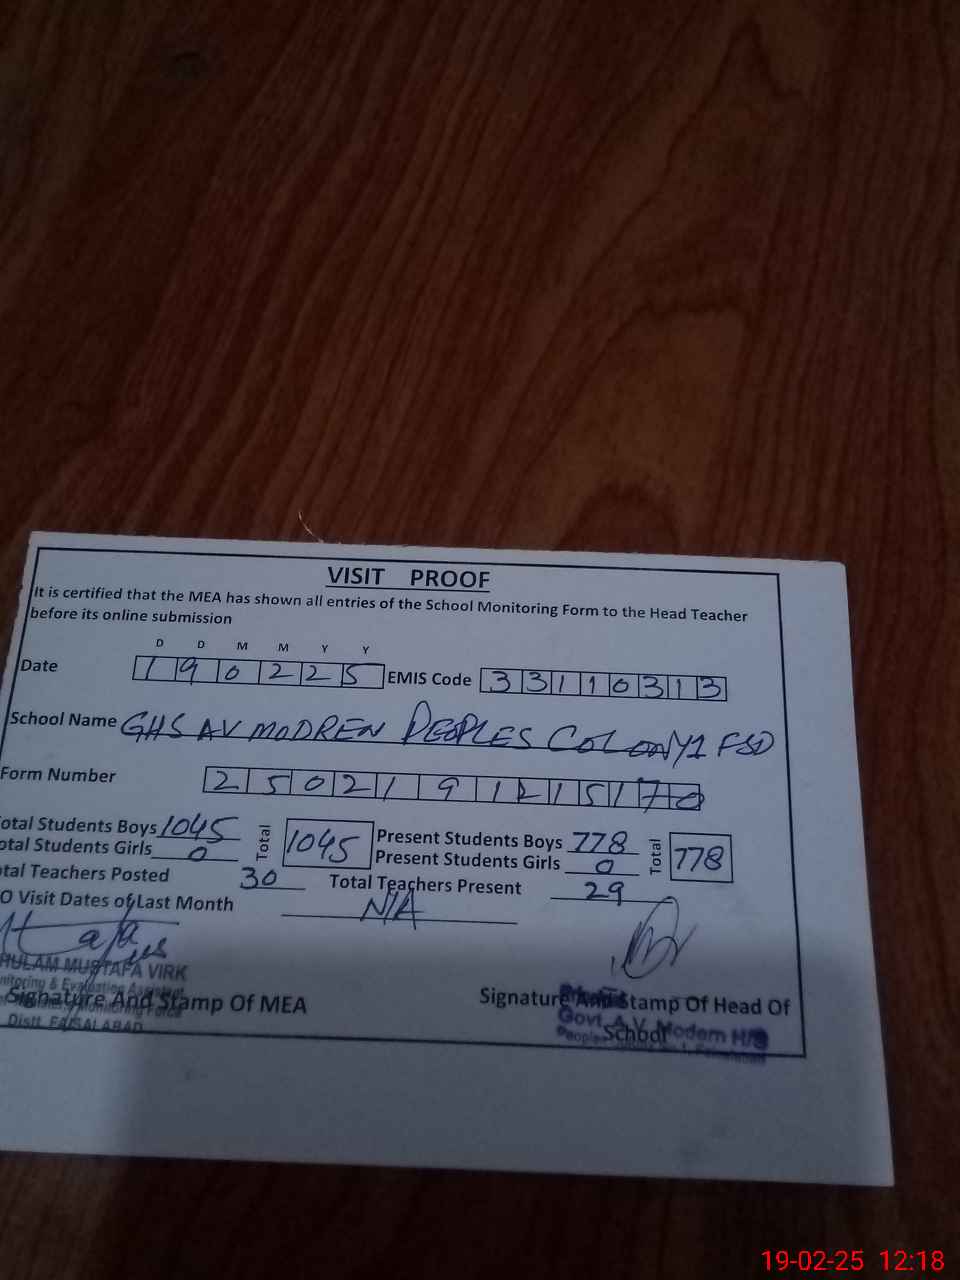 VISIT PROOF
It is certified that the MEA has shown all entries of the School Monitoring Form to the Head Teacher
before its online submission
D D M M Y Y
Date 1 9 0 2 2 5 EMIS Code 3 3 1 1 0 3 1 3
School Name GHS AV MODREN PEOPLES COLONY1 FSD
Form Number
otal Students Boys 1045 Total 1045 Present Students Boys 778 Total 778
otal Students Girls 0 Present Students Girls 0
tal Teachers Posted 30 Total Teachers Present 29
O Visit Dates of Last Month N/A
HULAM MUSTAFA VIRK
nitoring & Evaluation Assistant
Signature And Stamp Of MEA Signature And Stamp Of Head Of
School
Monitoring Force
Distt. FAISALABAD
Govt. A.V. Modern H/S
19-02-25 12:18